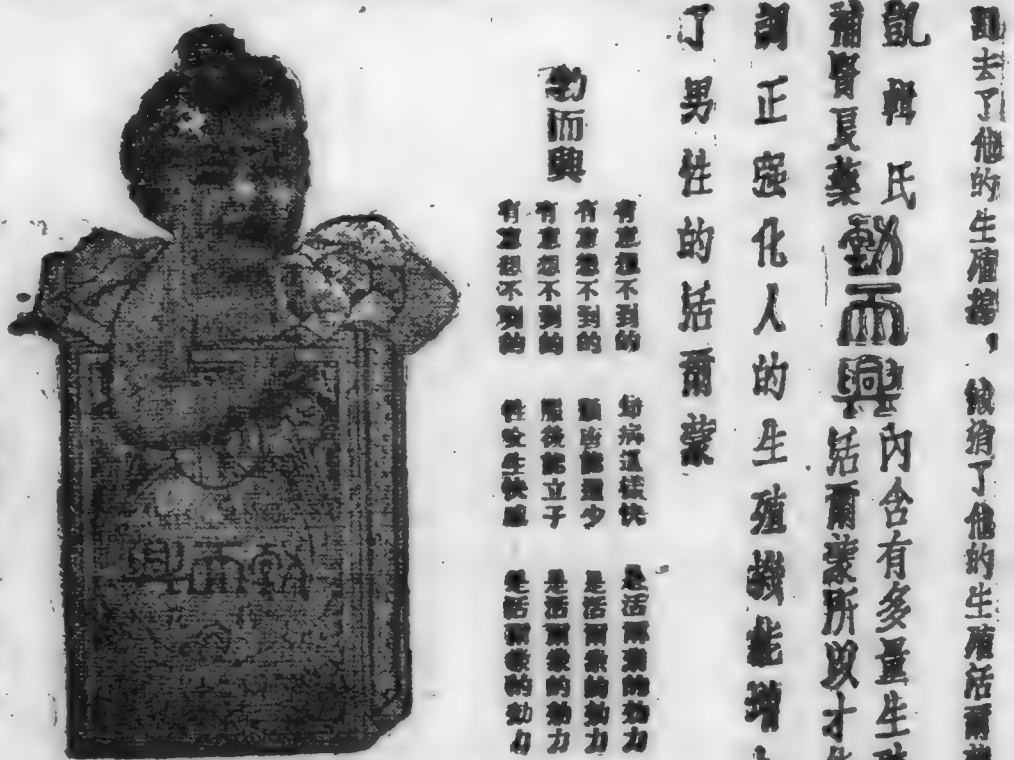 去了他的生殖腺，消了他的生殖活爾
凱輯氏
補腎良藥
勃而興
內含有多量生殖
活爾蒙所以才能
調正强化人的生殖機能增
了男性的活爾蒙
勃而興
有意想不到的 治病這樣快 是活爾蒙的効力
有意想不到的 能還少 是活爾蒙的効力
有意想不到的 服後能立于 是活爾蒙的効力
有意想不到的 性女生快感 是活爾蒙的効力
興而勃